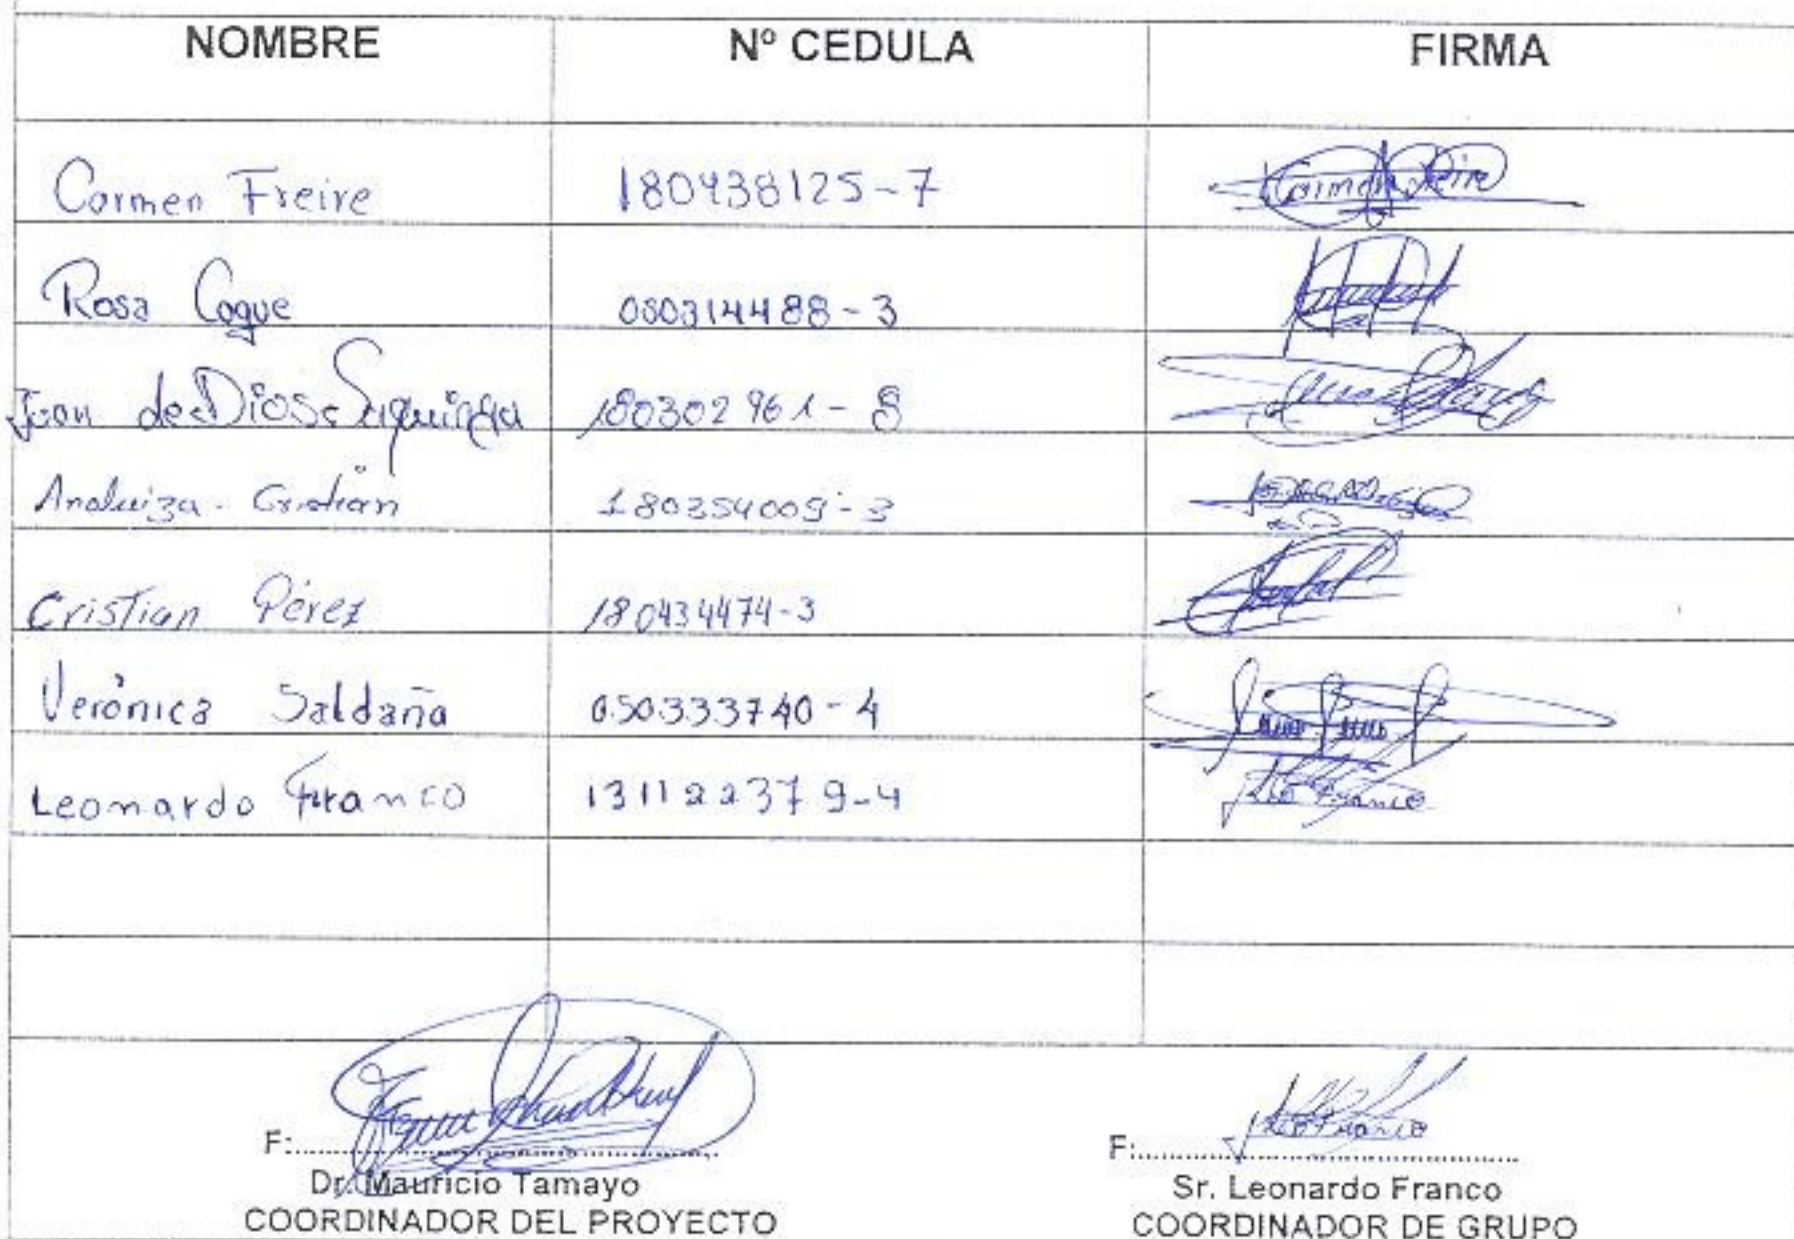 NOMBRE Nº CEDULA FIRMA
Carmen Freire 180438125-7
Rosa Coque 050314488-3
Juan de Dios 180302961-8
Analuiza - Cristian 180354009-3
Cristian Pérez 180434474-3
Verónica Saldaña 050333740-4
Leonardo Franco 131122379-4
F:
F:
Dr. Mauricio Tamayo
Sr. Leonardo Franco
COORDINADOR DEL PROYECTO
COORDINADOR DE GRUPO